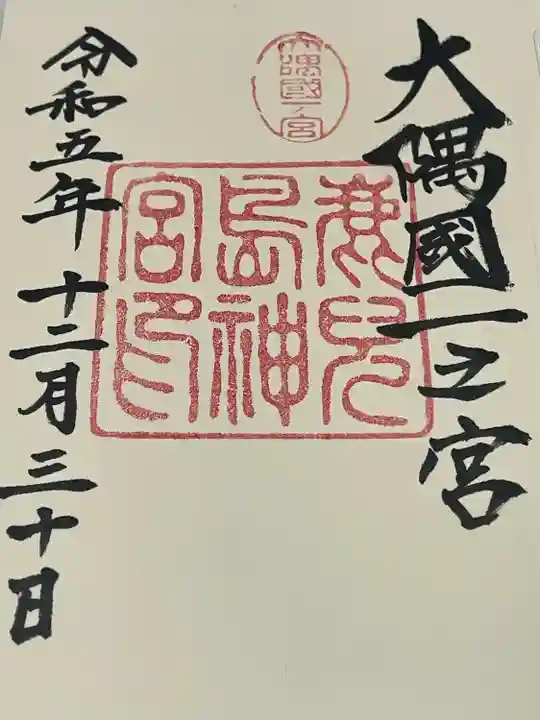 大隅國一之宮
大隅國一ノ宮
鹿兒
島神
宮印
令和五年十二月三十日